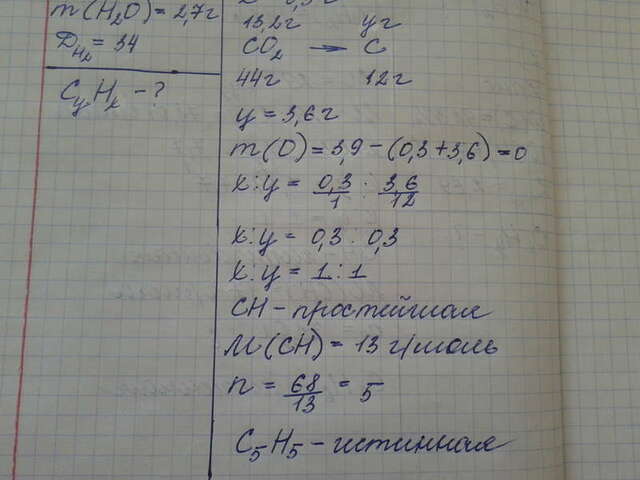 m(H₂O) = 2,7г
D_H₂ = 34
C_yH_x - ?
13,2г yг
CO₂ → C
44г 12г
y = 3,6г
m(O) = 3,9 - (0,3 + 3,6) = 0
x : y = 0,3/1 : 3,6/12
x : y = 0,3 : 0,3
x : y = 1 : 1
CH - простейшая
M(CH) = 13 г/моль
n = 68/13 = 5
C₅H₅ - истинная